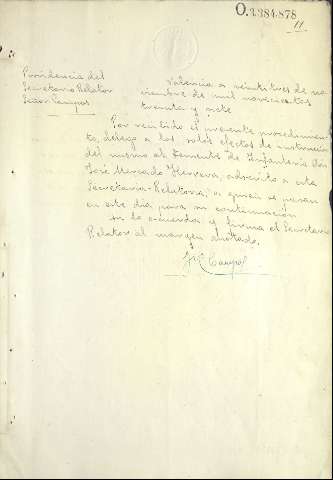 O.3.384.878
11
Providencia del
Secretario Relator
Señor Campos
Valencia a veintitres de no-
viembre de mil novecientos
treinta y siete
Por recibido el presente procedimien-
to, delego a los solos efectos de instrucción
del mismo al Teniente de Infanteria don
José Mercado Herrera, adscrito a esta
Secretaria-Relatoria, a quien se pasan
en este dia para su continuación
Asi lo acuerda y firma el Secretario
Relator al margen anotado.
Campos